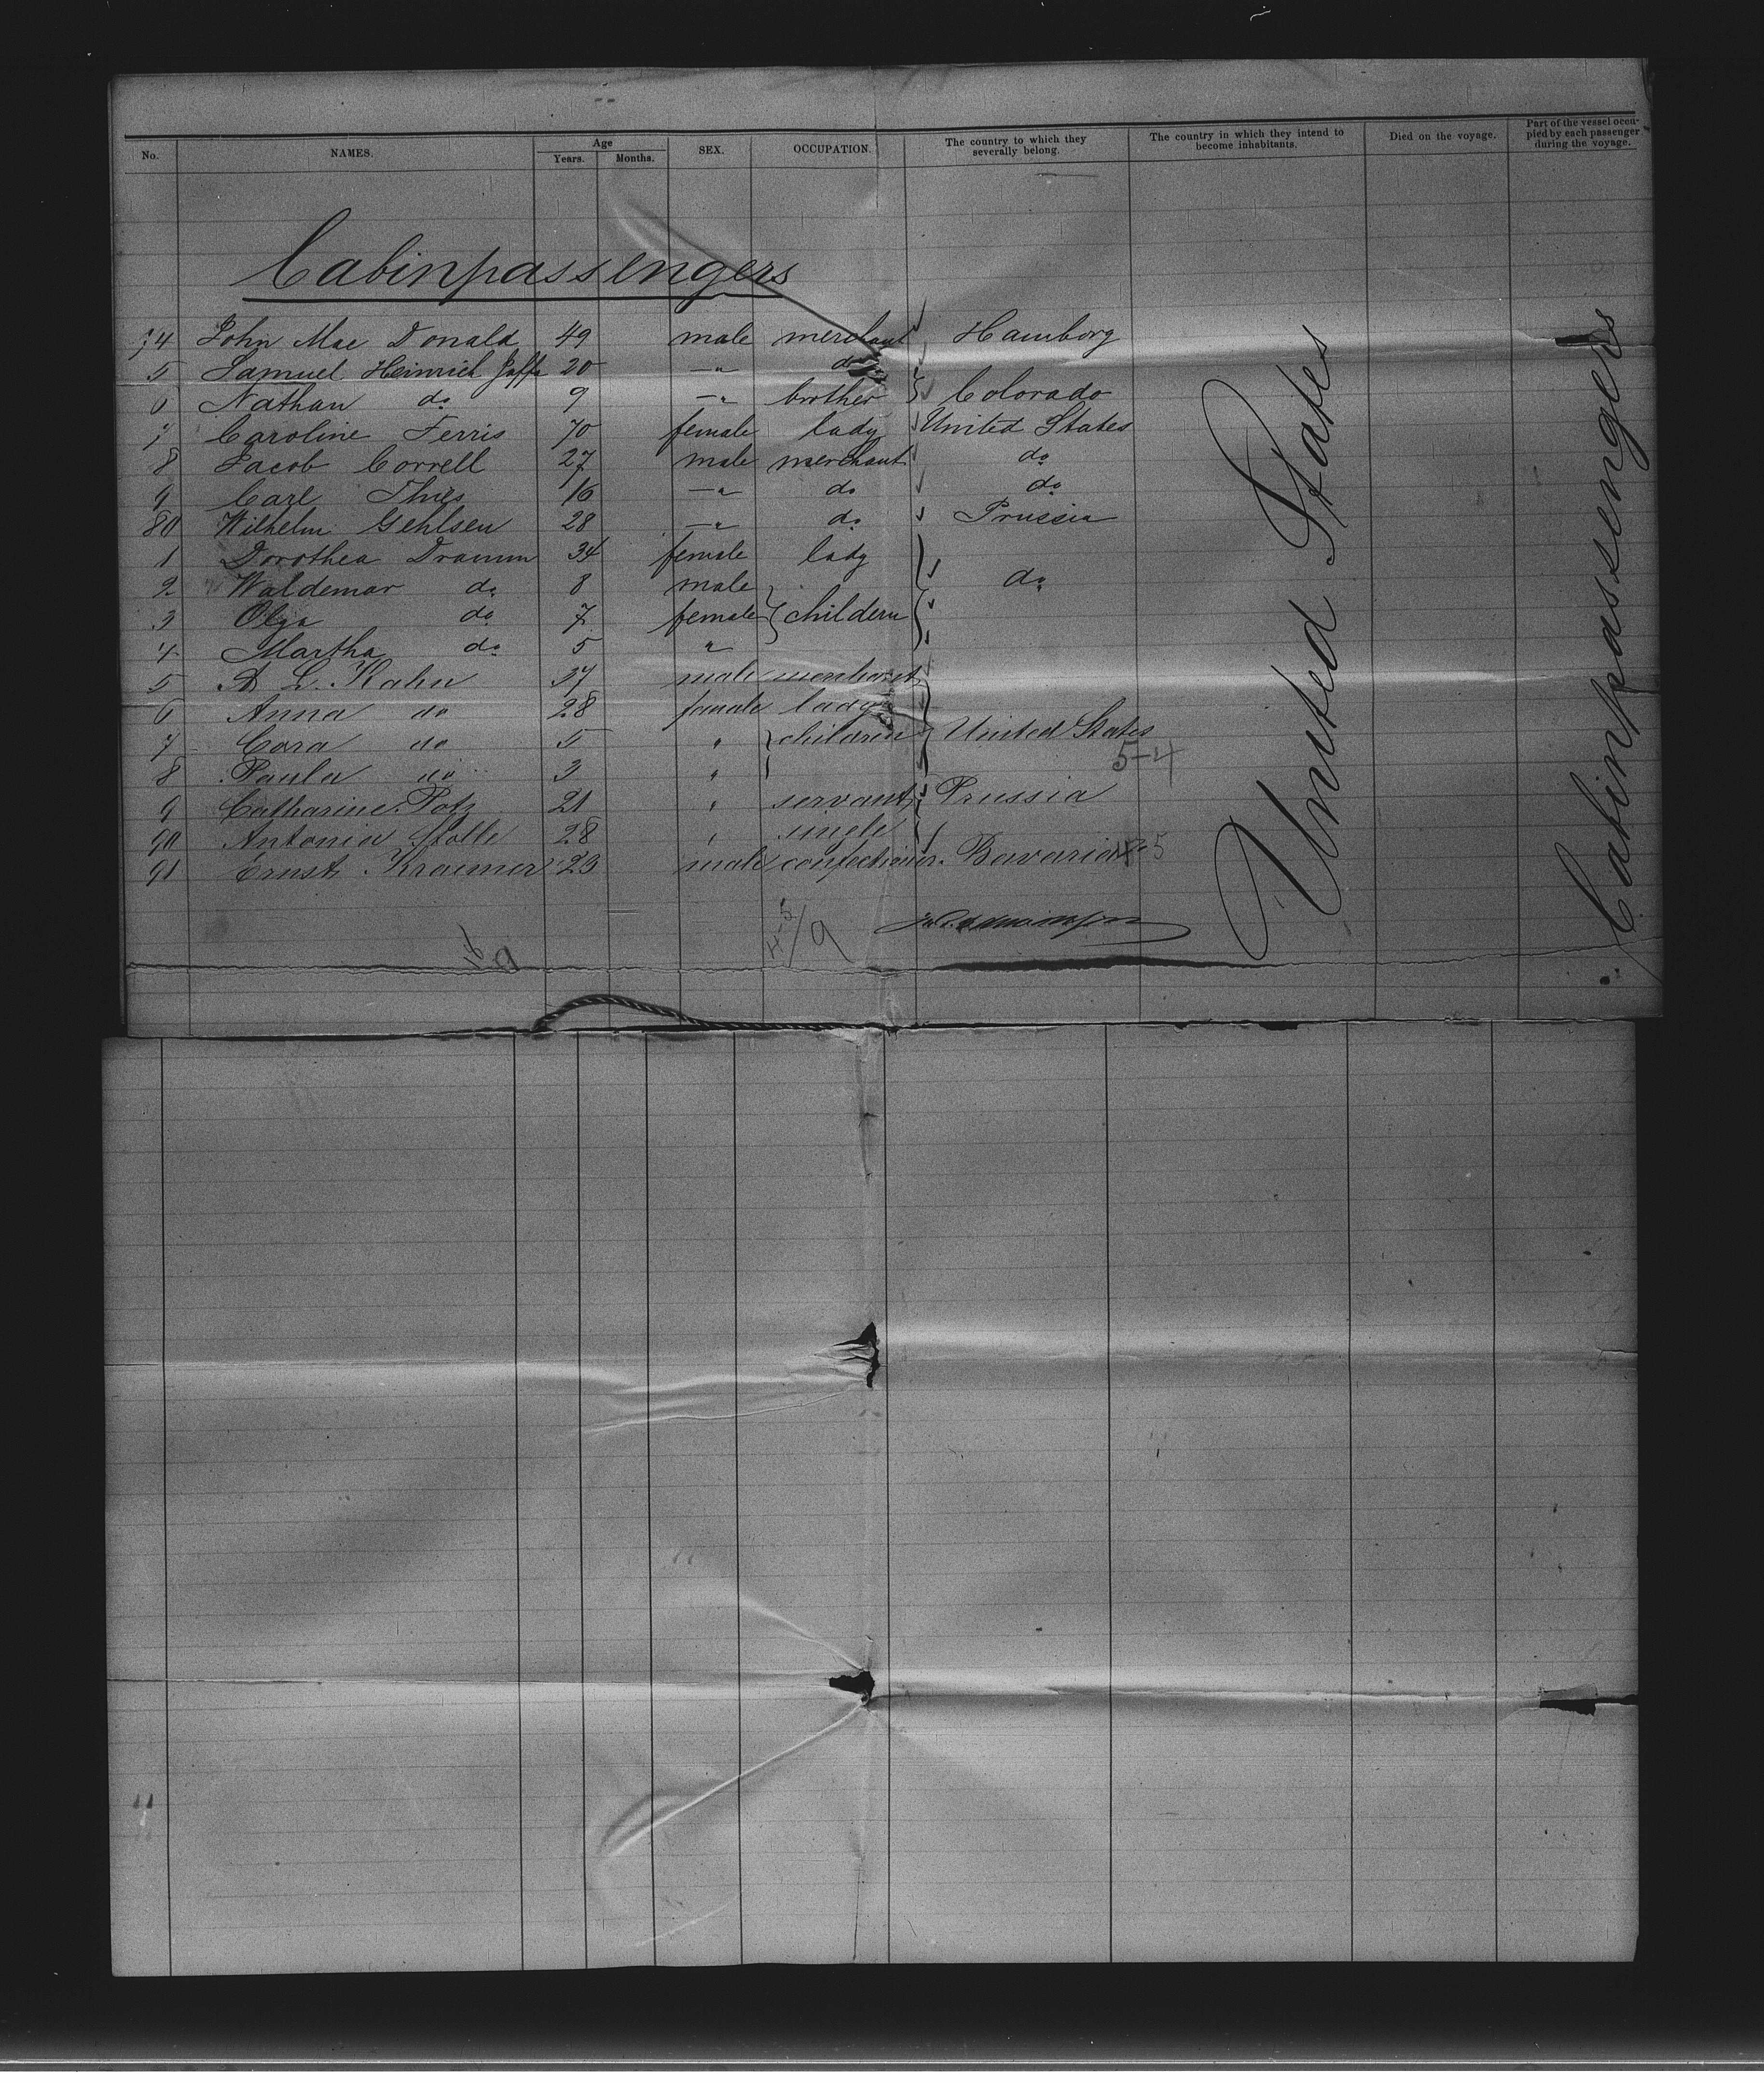 No. NAMES. Age Years. Months. SEX. OCCUPATION. The country to which they severally belong. The country in which they intend to become inhabitants. Died on the voyage. Part of the vessel occupied by each passenger during the voyage.
Cabinpassengers
74 John Mac Donald 49 male merchant Hamborg
5 Samuel Heinrich Jaffa 20 —" do
6 Nathan do 9 —" brother Colorado
7 Caroline Ferris 70 female lady United States
8 Jacob Correll 27 male merchant do
9 Carl Thies 16 —" do do
80 Wilhelm Gehlsen 28 —" do Prussia
1 Dorothea Dramm 34 female lady
2 Waldemar do 8 male do
3 Olga do 7 female childern
4 Martha do 5 "
5 A L. Kahn 37 male merchant
6 Anna do 28 female lady
7 Cora do 5 " children United States
8 Paula do 3 "
5-4
9 Catharine Potz 21 " servant Prussia
90 Antonia Stolle 28 " single
91 Ernst Kraemer 23 male confectioner Bavaria
United States
Cabinpassengers